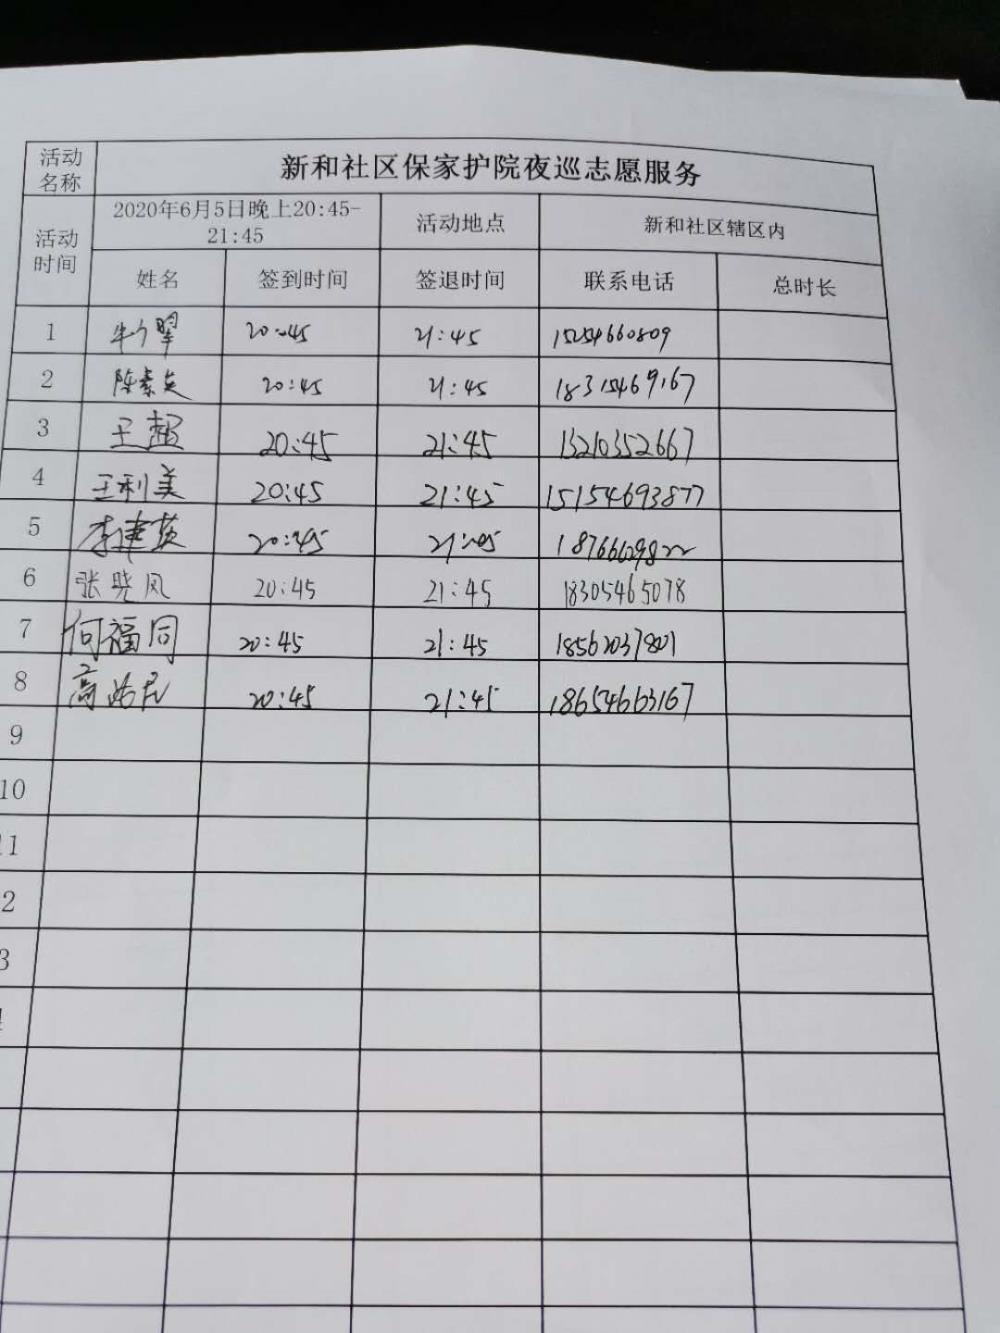 活动名称 新和社区保家护院夜巡志愿服务
活动时间 2020年6月5日晚上20:45-21:45 活动地点 新和社区辖区内
姓名 签到时间 签退时间 联系电话 总时长
1 20:45 21:45 15254660809
2 陈素英 20:45 21:45 18315469167
3 王超 20:45 21:45 13210352667
4 王利美 20:45 21:45 15154693877
5 李建英 20:45 21:45 18766629822
6 张晓凤 20:45 21:45 18305465078
7 何福同 20:45 21:45 18562037801
8 20:45 21:45 18654663167
9
10
11
2
3
4